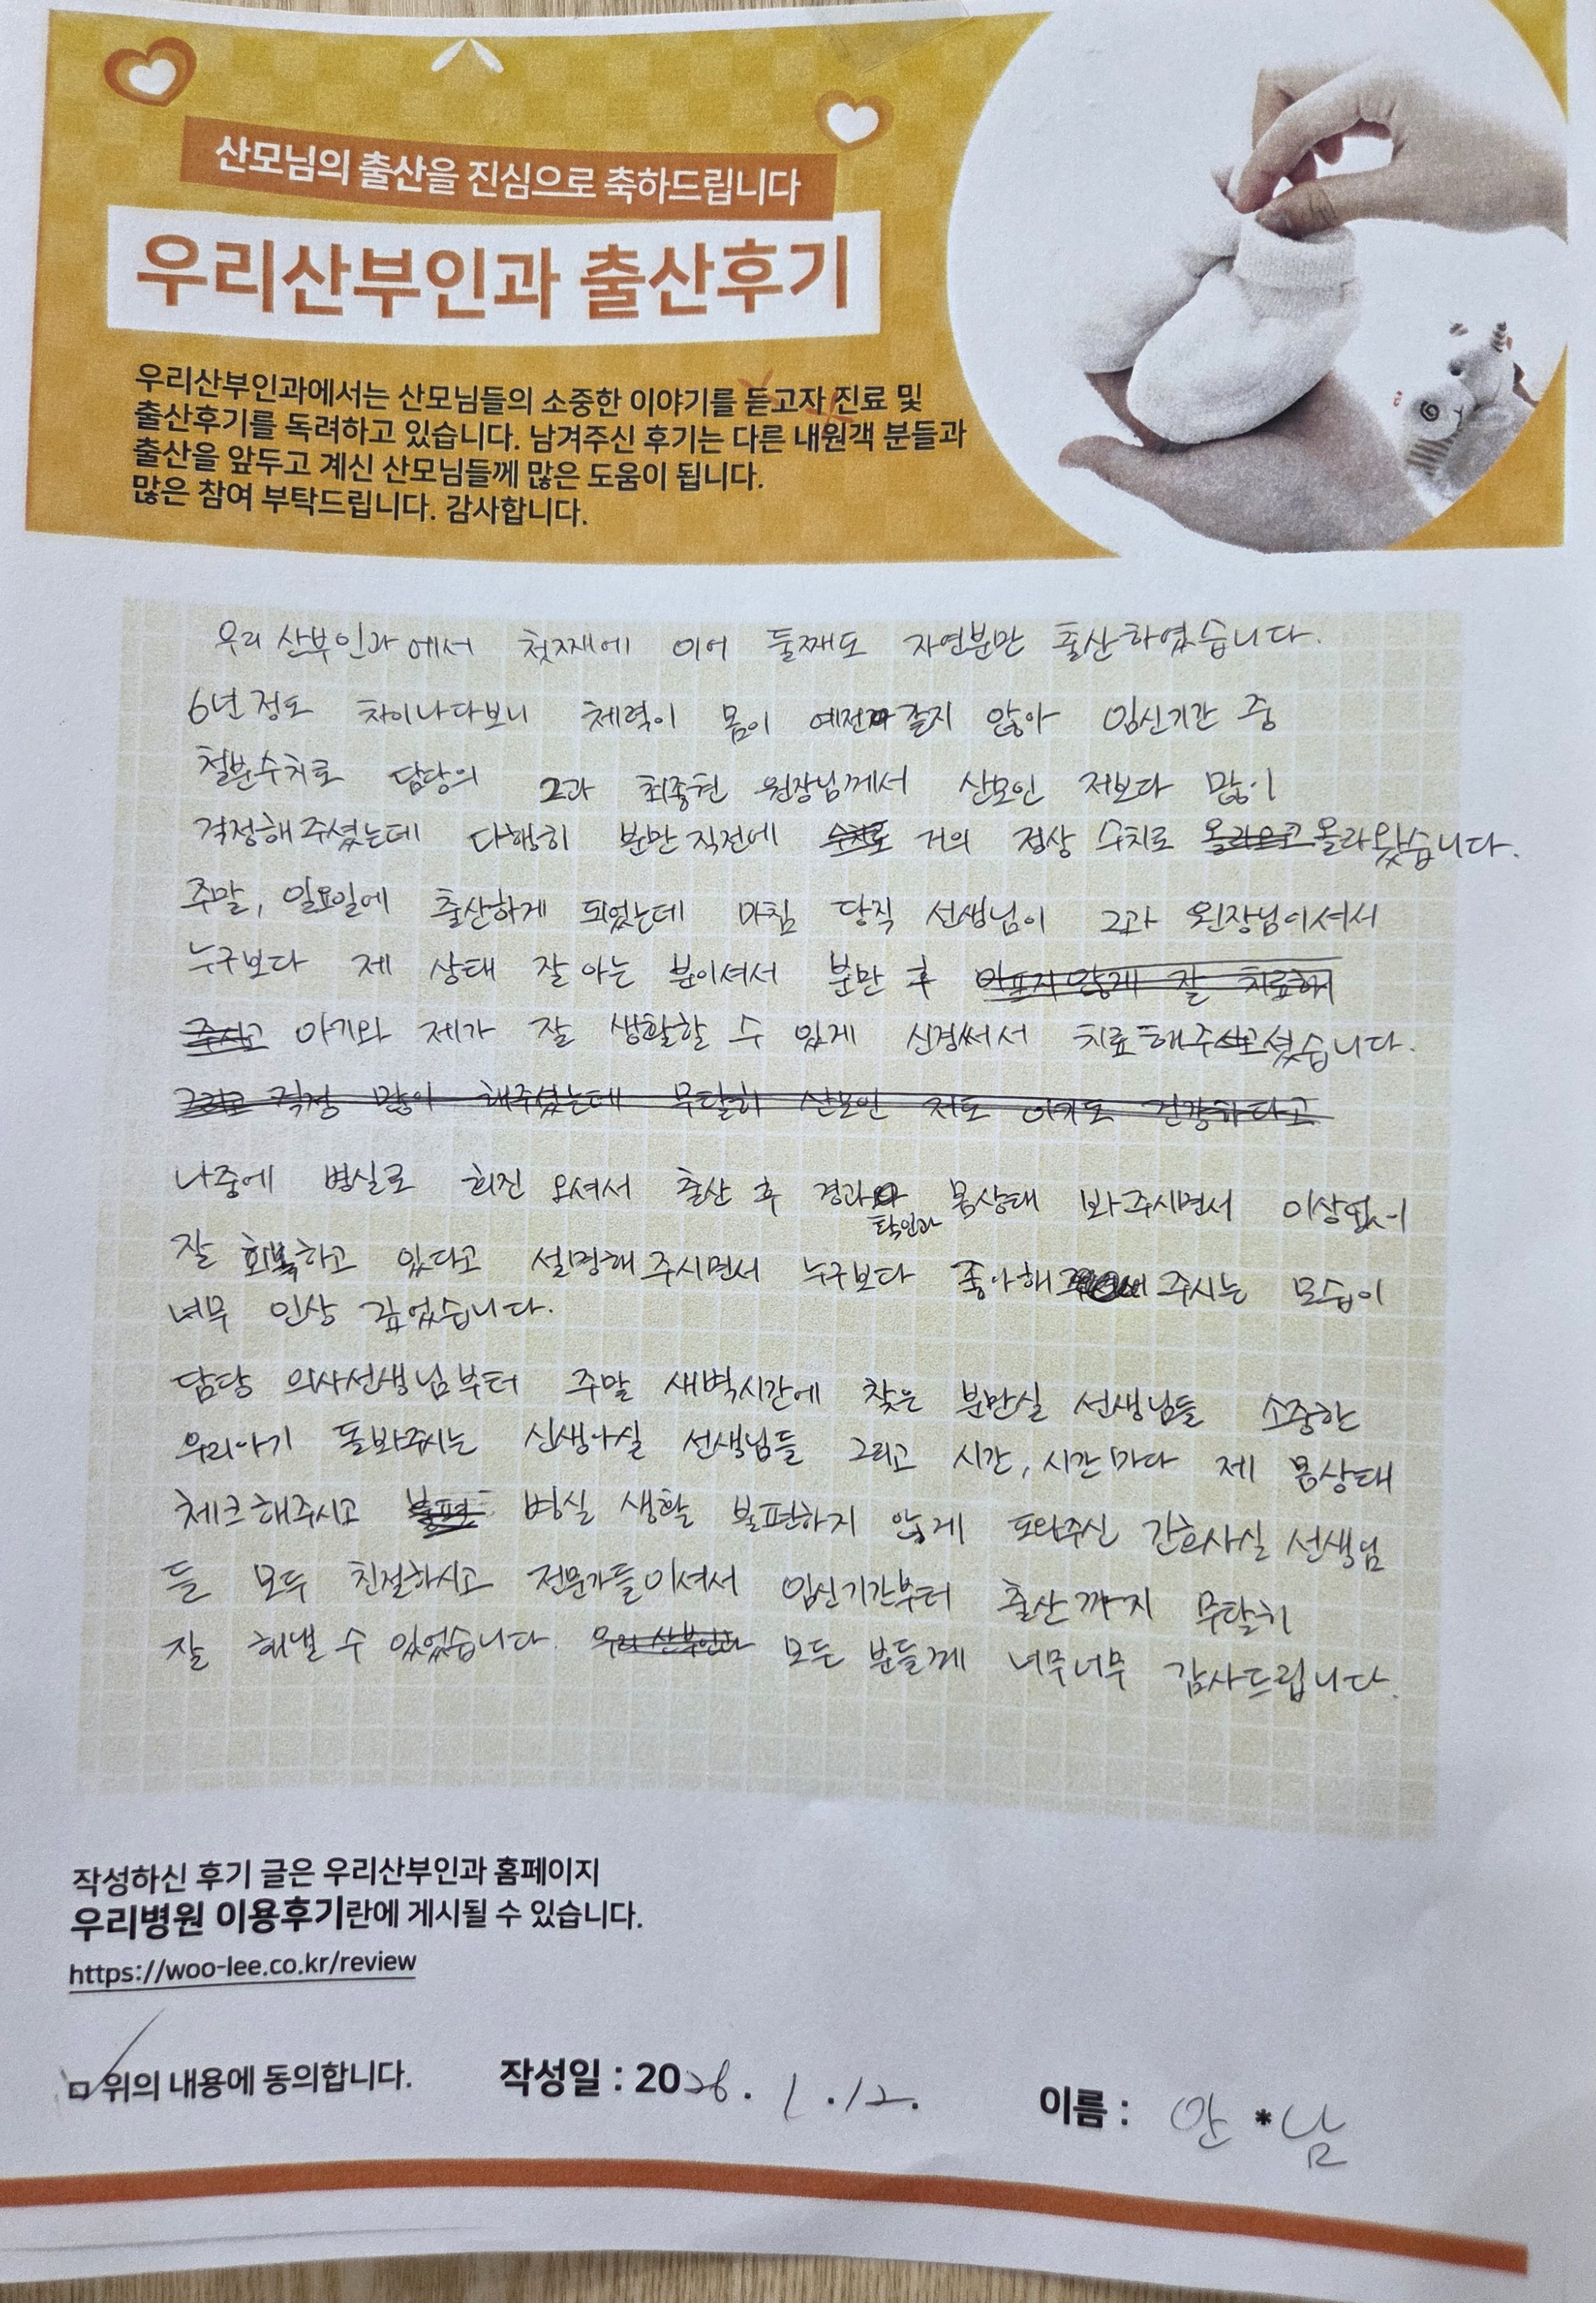 산모님의 출산을 진심으로 축하드립니다
우리산부인과 출산후기
우리산부인과에서는 산모님들의 소중한 이야기를 듣고자 진료 및
출산후기를 독려하고 있습니다. 남겨주신 후기는 다른 내원객 분들과
출산을 앞두고 계신 산모님들께 많은 도움이 됩니다.
많은 참여 부탁드립니다. 감사합니다.
우리 산부인과에서 첫째에 이어 둘째도 자연분만 출산하였습니다.
6년 정도 차이나다보니 체력이 몸이 예전 같지 않아 임신기간 중
철분수치로 담당의 2과 최종현 원장님께서 산모인 저보다 많이
걱정해주셨는데 다행히 분만 직전에 수치로 거의 정상 수치로 올라오고 올라왔습니다.
주말, 일요일에 출산하게 되었는데 마침 당직 선생님이 2과 원장님이셔서
누구보다 제 상태 잘 아는 분이셔서 분만 후 아프지 않게 잘 치료해
주시고 아기와 제가 잘 생활할 수 있게 신경써서 치료해주시고셨습니다.
그리고 걱정 많이 해주셨는데 무탈히 산모인 저도 아기도 건강하다고
나중에 병실로 회진 오셔서 출산 후 경과 몸상태 봐주시면서 이상없이
확인과
잘 회복하고 있다고 설명해 주시면서 누구보다 좋아해 주시는 모습이
너무 인상 깊었습니다.
담당 의사선생님부터 주말 새벽시간에 찾은 분만실 선생님들 소중한
우리아기 돌봐주시는 신생아실 선생님들 그리고 시간, 시간마다 제 몸상태
체크해주시고 불편 병실 생활 불편하지 않게 도와주신 간호사실 선생님
들 모두 친절하시고 전문가들이셔서 임신기간부터 출산까지 무탈히
잘 해낼 수 있었습니다. 우리 산부인과 모든 분들께 너무너무 감사드립니다.
작성하신 후기 글은 우리산부인과 홈페이지
우리병원 이용후기란에 게시될 수 있습니다.
https://woo-lee.co.kr/review
위의 내용에 동의합니다. 작성일 : 2026. 1. 12. 이름 : 안*남